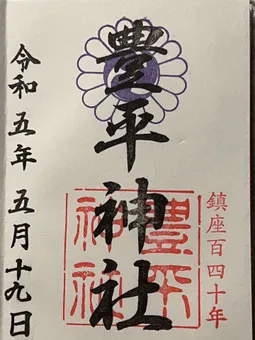 鎮座百四十年
豊平神社
豊平神社
令和五年五月十九日